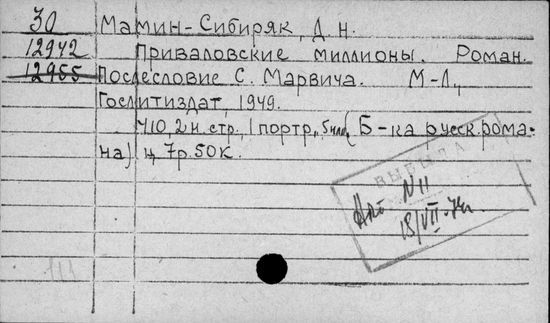 30 Мамин-Сибиряк, Д. Н.
12942 Приваловские миллионы. Роман.
12955 Послесловие С. Марвича. М-Л.,
Гослитиздат, 1949.
410, 2 н. стр., 1 портр., 5 илл. (Б-ка русск. рома-
на) ц 7р. 50к.
ВЫБЫЛА
Акт N11
18/VII-74г.